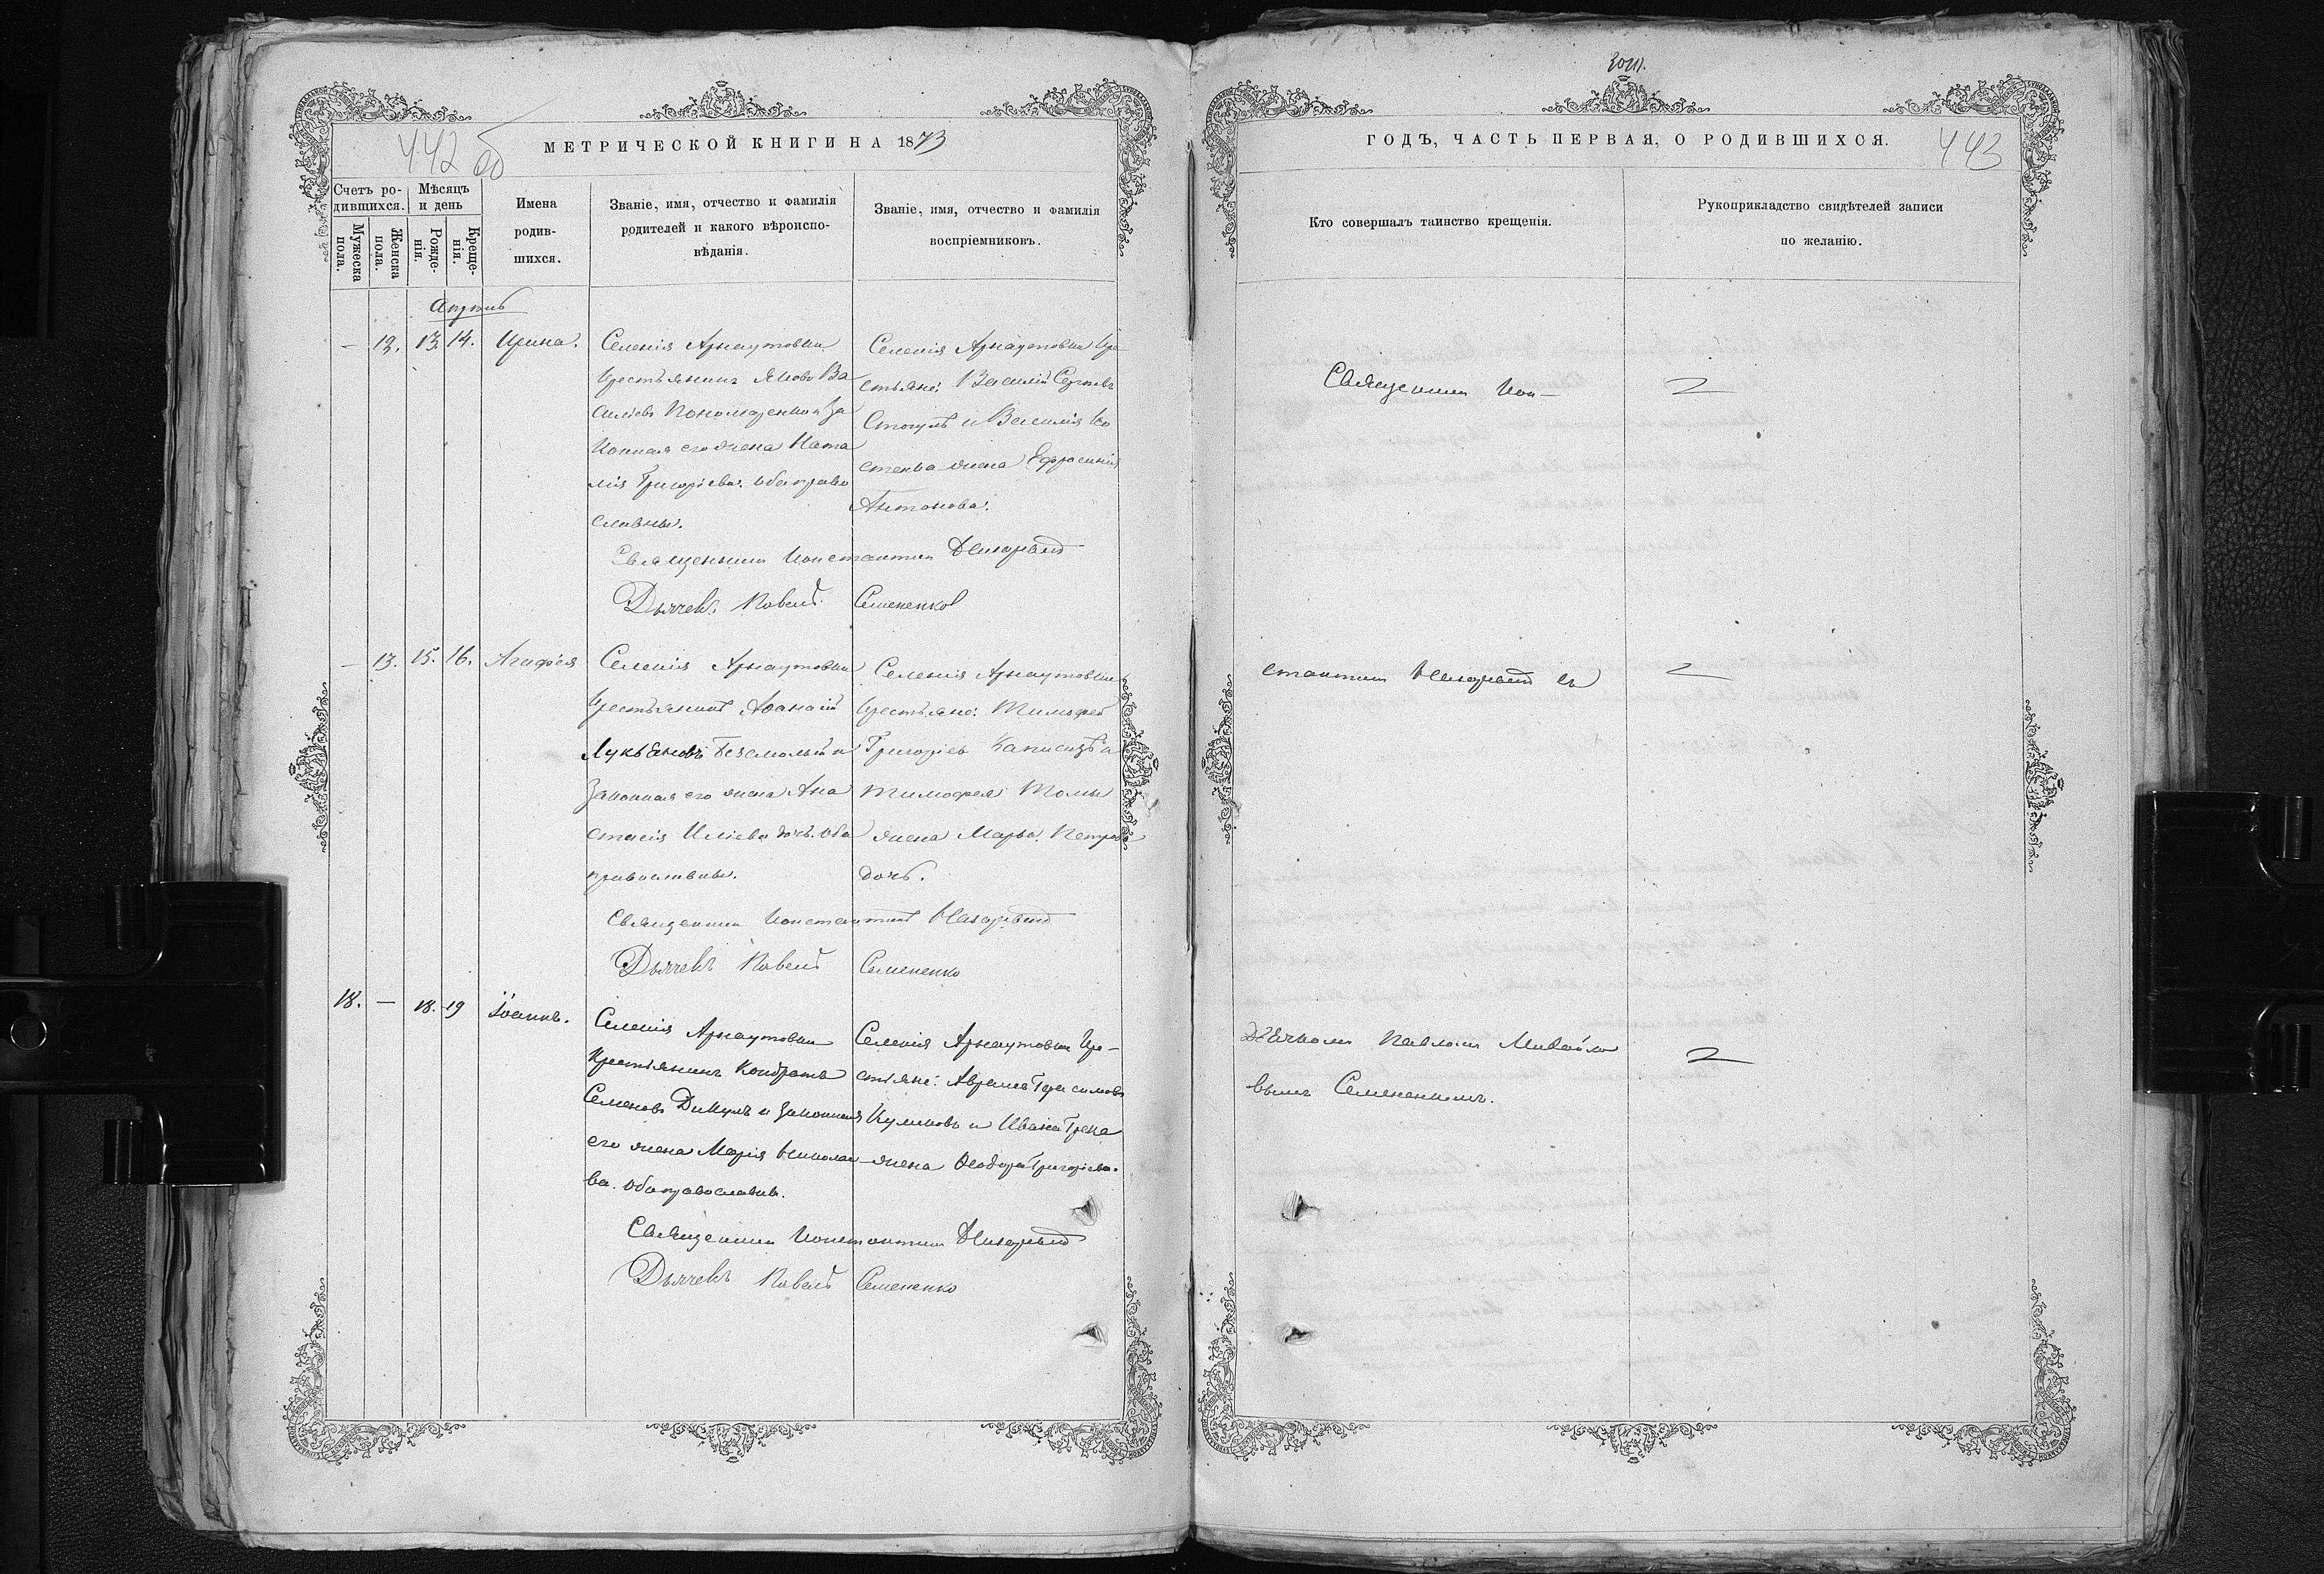 442 об
МЕТРИЧЕСКОЙ КНИГИ НА 1873
Счетъ ро-
дившихся.
Мѣсяцъ
и день
Мужеска
пола.
Женска
пола.
Рожде-
нія.
Креще-
нія.
Имена
родив-
шихся.
Званіе, имя, отчество и фамилія
родителей и какого вѣроиспо-
вѣданія.
Званіе, имя, отчество и фамилія
воспріемниковъ.
Апрѣль
— 12. 13. 14. Ирина.
Селенія Арнаутовки
Крестьянинъ Яковъ Ва
силіевъ Пономаренко и за
конная его жена Ната
лія Григоріева. оба право
славны.
Селенія Арнаутовки Кре
стьяне: Василій
и Василія Ко
жена Ефросинія
Антонова.
Священникъ Константинъ
Дьячекъ Павелъ Семененков
— 13. 15. 16. Агафія
Селенія Арнаутовки
Крестьянинъ Аѳанасій
Лукьяновъ и
Законная его жена Ана
стасія Иліева дочь. оба
православны.
Селенія Арнаутовки
Крестьяне: Тимофей
Григоріевъ и
Тимофея Томы
жена Марѳа Петрова
дочь.
Священникъ Константинъ
Дьячекъ Павелъ Семененко
18. — 18. 19 Іоаннъ.
Селенія Арнаутовки
Крестьянинъ Кондратъ
Семеновъ Дикулъ и Законная
его жена Марія Николае
ва. оба православны.
Селенія Арнаутовки Кре-
стьяне: Аврамъ Герасимовъ
Куликовъ и Ивана Грека
жена Ѳеодора Григоріева.
Священникъ Константинъ
Дьячекъ Павелъ Семененко
ГОДЪ, ЧАСТЬ ПЕРВАЯ, О РОДИВШИХСЯ.
443
Кто совершалъ таинство крещенія.
Рукоприкладство свидѣтелей записи
по желанію.
Священникъ Кон—
стантинъ съ
Дьячкомъ Павломъ Михайло
вымъ Семененкомъ.